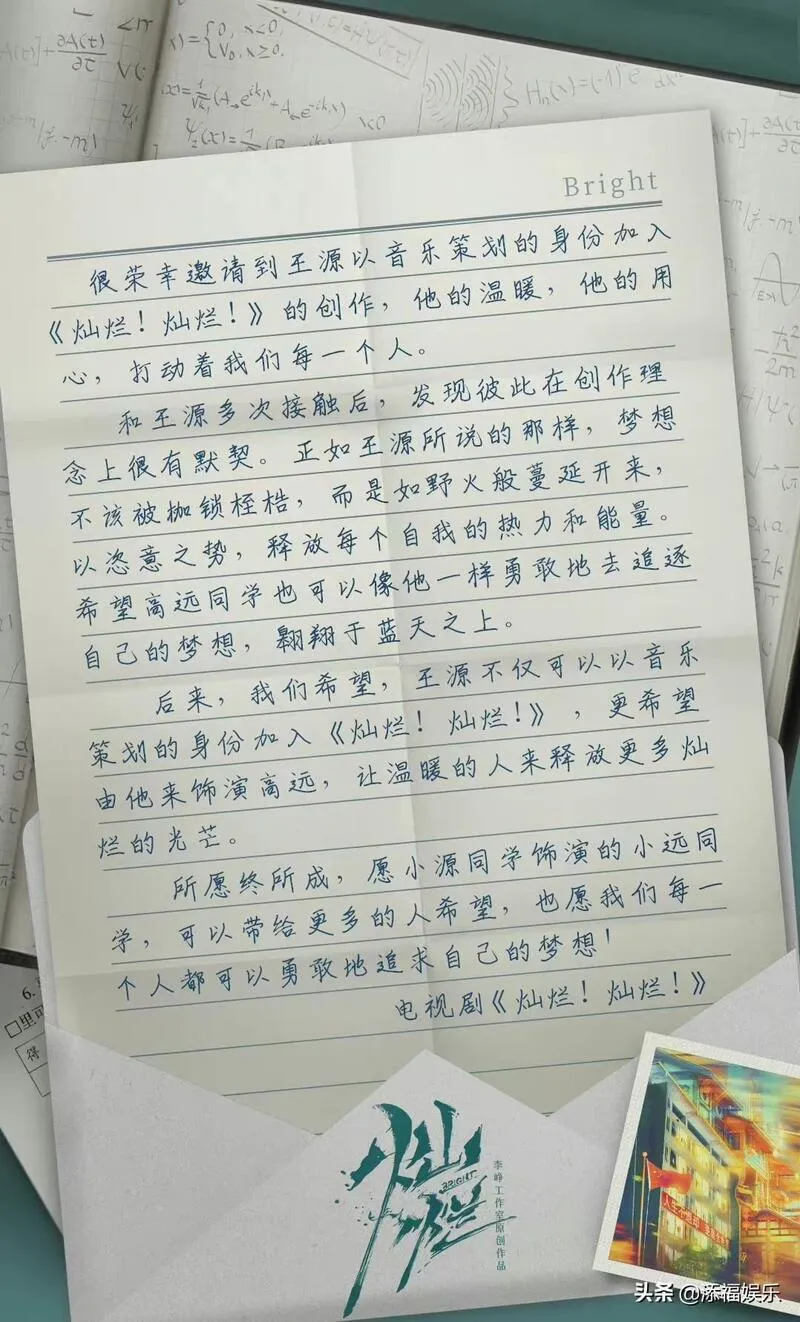 Bright
很荣幸邀请到王源以音乐策划的身份加入
《灿烂！灿烂！》的创作，他的温暖，他的用
心，打动着我们每一个人。
和王源多次接触后，发现彼此在创作理
念上很有默契。正如王源所说的那样，梦想
不该被枷锁桎梏，而是如野火般蔓延开来，
以恣意之势，释放每个自我的热力和能量。
希望高远同学也可以像他一样勇敢地去追逐
自己的梦想，翱翔于蓝天之上。
后来，我们希望，王源不仅可以以音乐
策划的身份加入《灿烂！灿烂！》，更希望
由他来饰演高远，让温暖的人来释放更多灿
烂的光芒。
所愿终所成，愿小源同学饰演的小远同
学，可以带给更多的人希望，也愿我们每一
个人都可以勇敢地追求自己的梦想！
电视剧《灿烂！灿烂！》
灿烂
BRIGHT
李峥工作室原创作品
头条 @添福娱乐